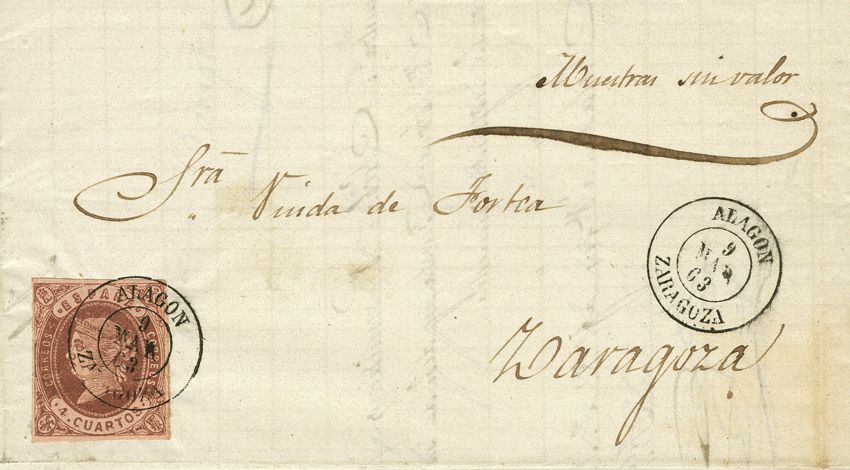 Muestras sin valor
Sra
" Viuda de Fortea
Zaragoza
ALAGON
9
MAR
63
ZARAGOZA
ESPAÑA
CORREOS
4 CUARTOS
ALAGON
9
MAR
63